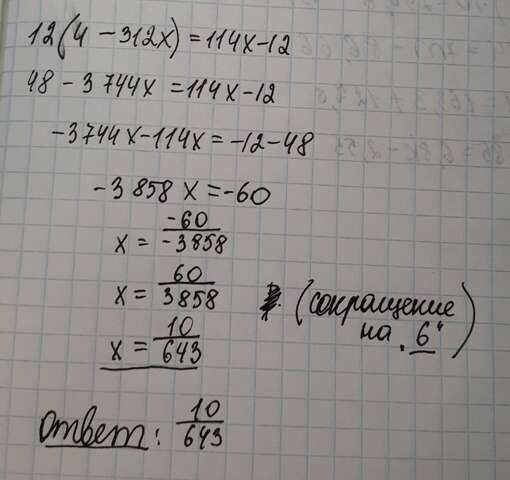 12(4 - 312x) = 114x - 12
48 - 3744x = 114x - 12
-3744x - 114x = -12 - 48
-3858x = -60
x = -60/-3858
x = 60/3858 (сокращение на "6")
x = 10/643
Ответ: 10/643